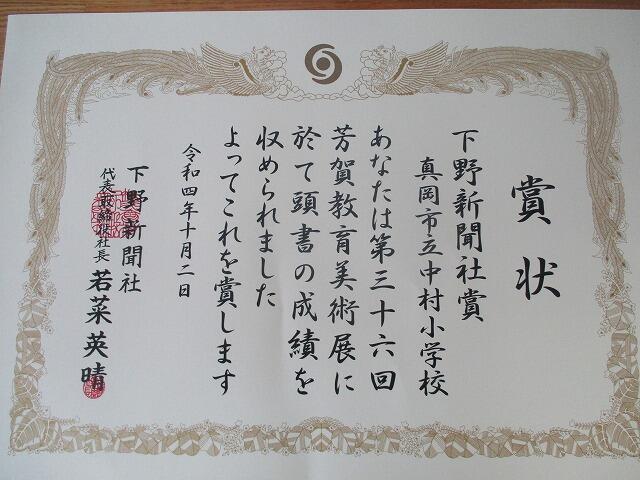 賞状
下野新聞社賞
真岡市立中村小学校
あなたは第三十六回
芳賀教育美術展に
於て頭書の成績を
収められました
よってこれを賞します
令和四年十月二日
下野新聞社
代表取締役社長 若菜英晴